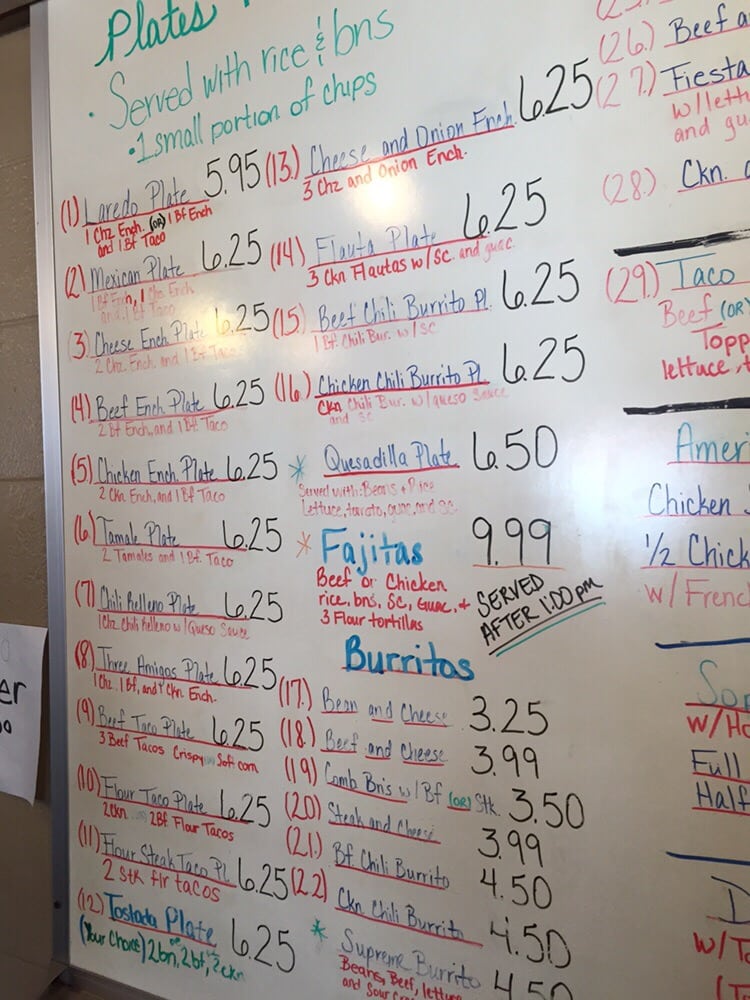 Plates
• Served with rice & bns
• 1 small portion of chips
(1) Laredo Plate 5.95
1 Chz Ench. (OR) 1 Bf Ench
and 1 Bf Taco
(2) Mexican Plate 6.25
1 Bf Ench, 1 Chz Ench
and 1 Bf Taco
(3) Cheese Ench Plate 6.25
2 Chz Ench. and 1 Bf Taco
(4) Beef Ench Plate 6.25
2 Bf Ench, and 1 Bf. Taco
(5) Chicken Ench. Plate 6.25
2 Ckn Ench, and 1 Bf Taco
(6) Tamale Plate 6.25
2 Tamales and 1 Bf. Taco
(7) Chili Relleno Plate 6.25
1 Chz Chili Relleno w/ Queso Sauce
(8) Three Amigos Plate 6.25
1 Chz, 1 Bf, and 1 Ckn. Ench.
(9) Beef Taco Plate 6.25
3 Beef Tacos Crispy Soft corn
(10) Flour Taco Plate 6.25
2 Ckn 2 Bf Flour Tacos
(11) Flour Steak Taco Pl. 6.25
2 stk flr tacos
(12) Tostada Plate 6.25
(Your Choice) 2 bn, 2 bf, 2 ckn
(13.) Cheese and Onion Ench. 6.25
3 Chz and Onion Ench.
(14) Flauta Plate 6.25
3 Ckn Flautas w/ sc and guac.
(15) Beef Chili Burrito Pl. 6.25
1 Bf. Chili Bur. w/ sc
(16) Chicken Chili Burrito Pl. 6.25
Ckn Chili Bur. w/ queso Sauce
and sc
* Quesadilla Plate 6.50
Served with: Beans + Rice
Lettuce, tomato, guac, and sc.
* Fajitas 9.99
Beef or Chicken
rice, bns, sc, Guac, +
3 Flour tortillas
SERVED
AFTER 1:00 pm
Burritos
(17.) Bean and Cheese 3.25
(18.) Beef and Cheese 3.99
(19) Comb Bns w/ Bf (OR) Stk. 3.50
(20) Steak and Cheese 3.99
(21.) Bf Chili Burrito 4.50
(22) Ckn Chili Burrito 4.50
* Supreme Burrito 4.50
Beans, Beef, lettuce
and Sour
(26.) Beef
(27.) Fiesta
w/ lett
and gu
(28.) Ckn.
(29.) Taco
Beef (OR)
Topp
lettuce,
Ameri
Chicken
1/2 Chick
w/ Frenc
So
w/
Full
Half
w/
er